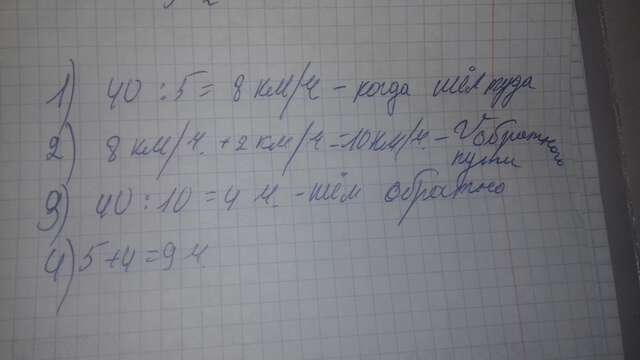 1) 40 : 5 = 8 км/ч - когда шёл туда
2) 8 км/ч + 2 км/ч = 10 км/ч - V обратного
пути
3) 40 : 10 = 4 ч - шёл обратно
4) 5 + 4 = 9 ч